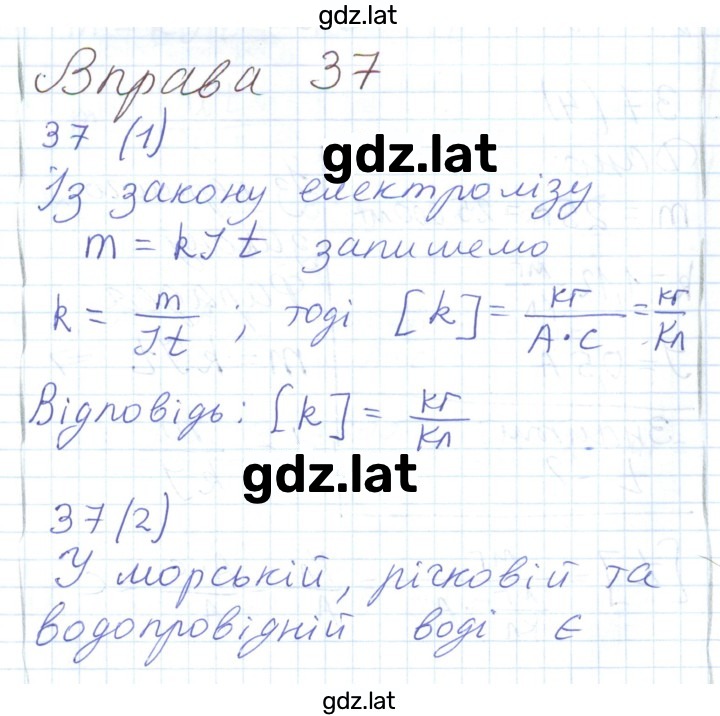 gdz.lat
Вправа 37
37 (1)
gdz.lat
Із закону електролізу
m = kIt запишемо
k = m/(I·t) ; тоді [k] = кг/(А·с) = кг/Кл
Відповідь: [k] = кг/Кл
gdz.lat
37(2)
У морській, річковій та
водопровідній воді є
gdz.lat